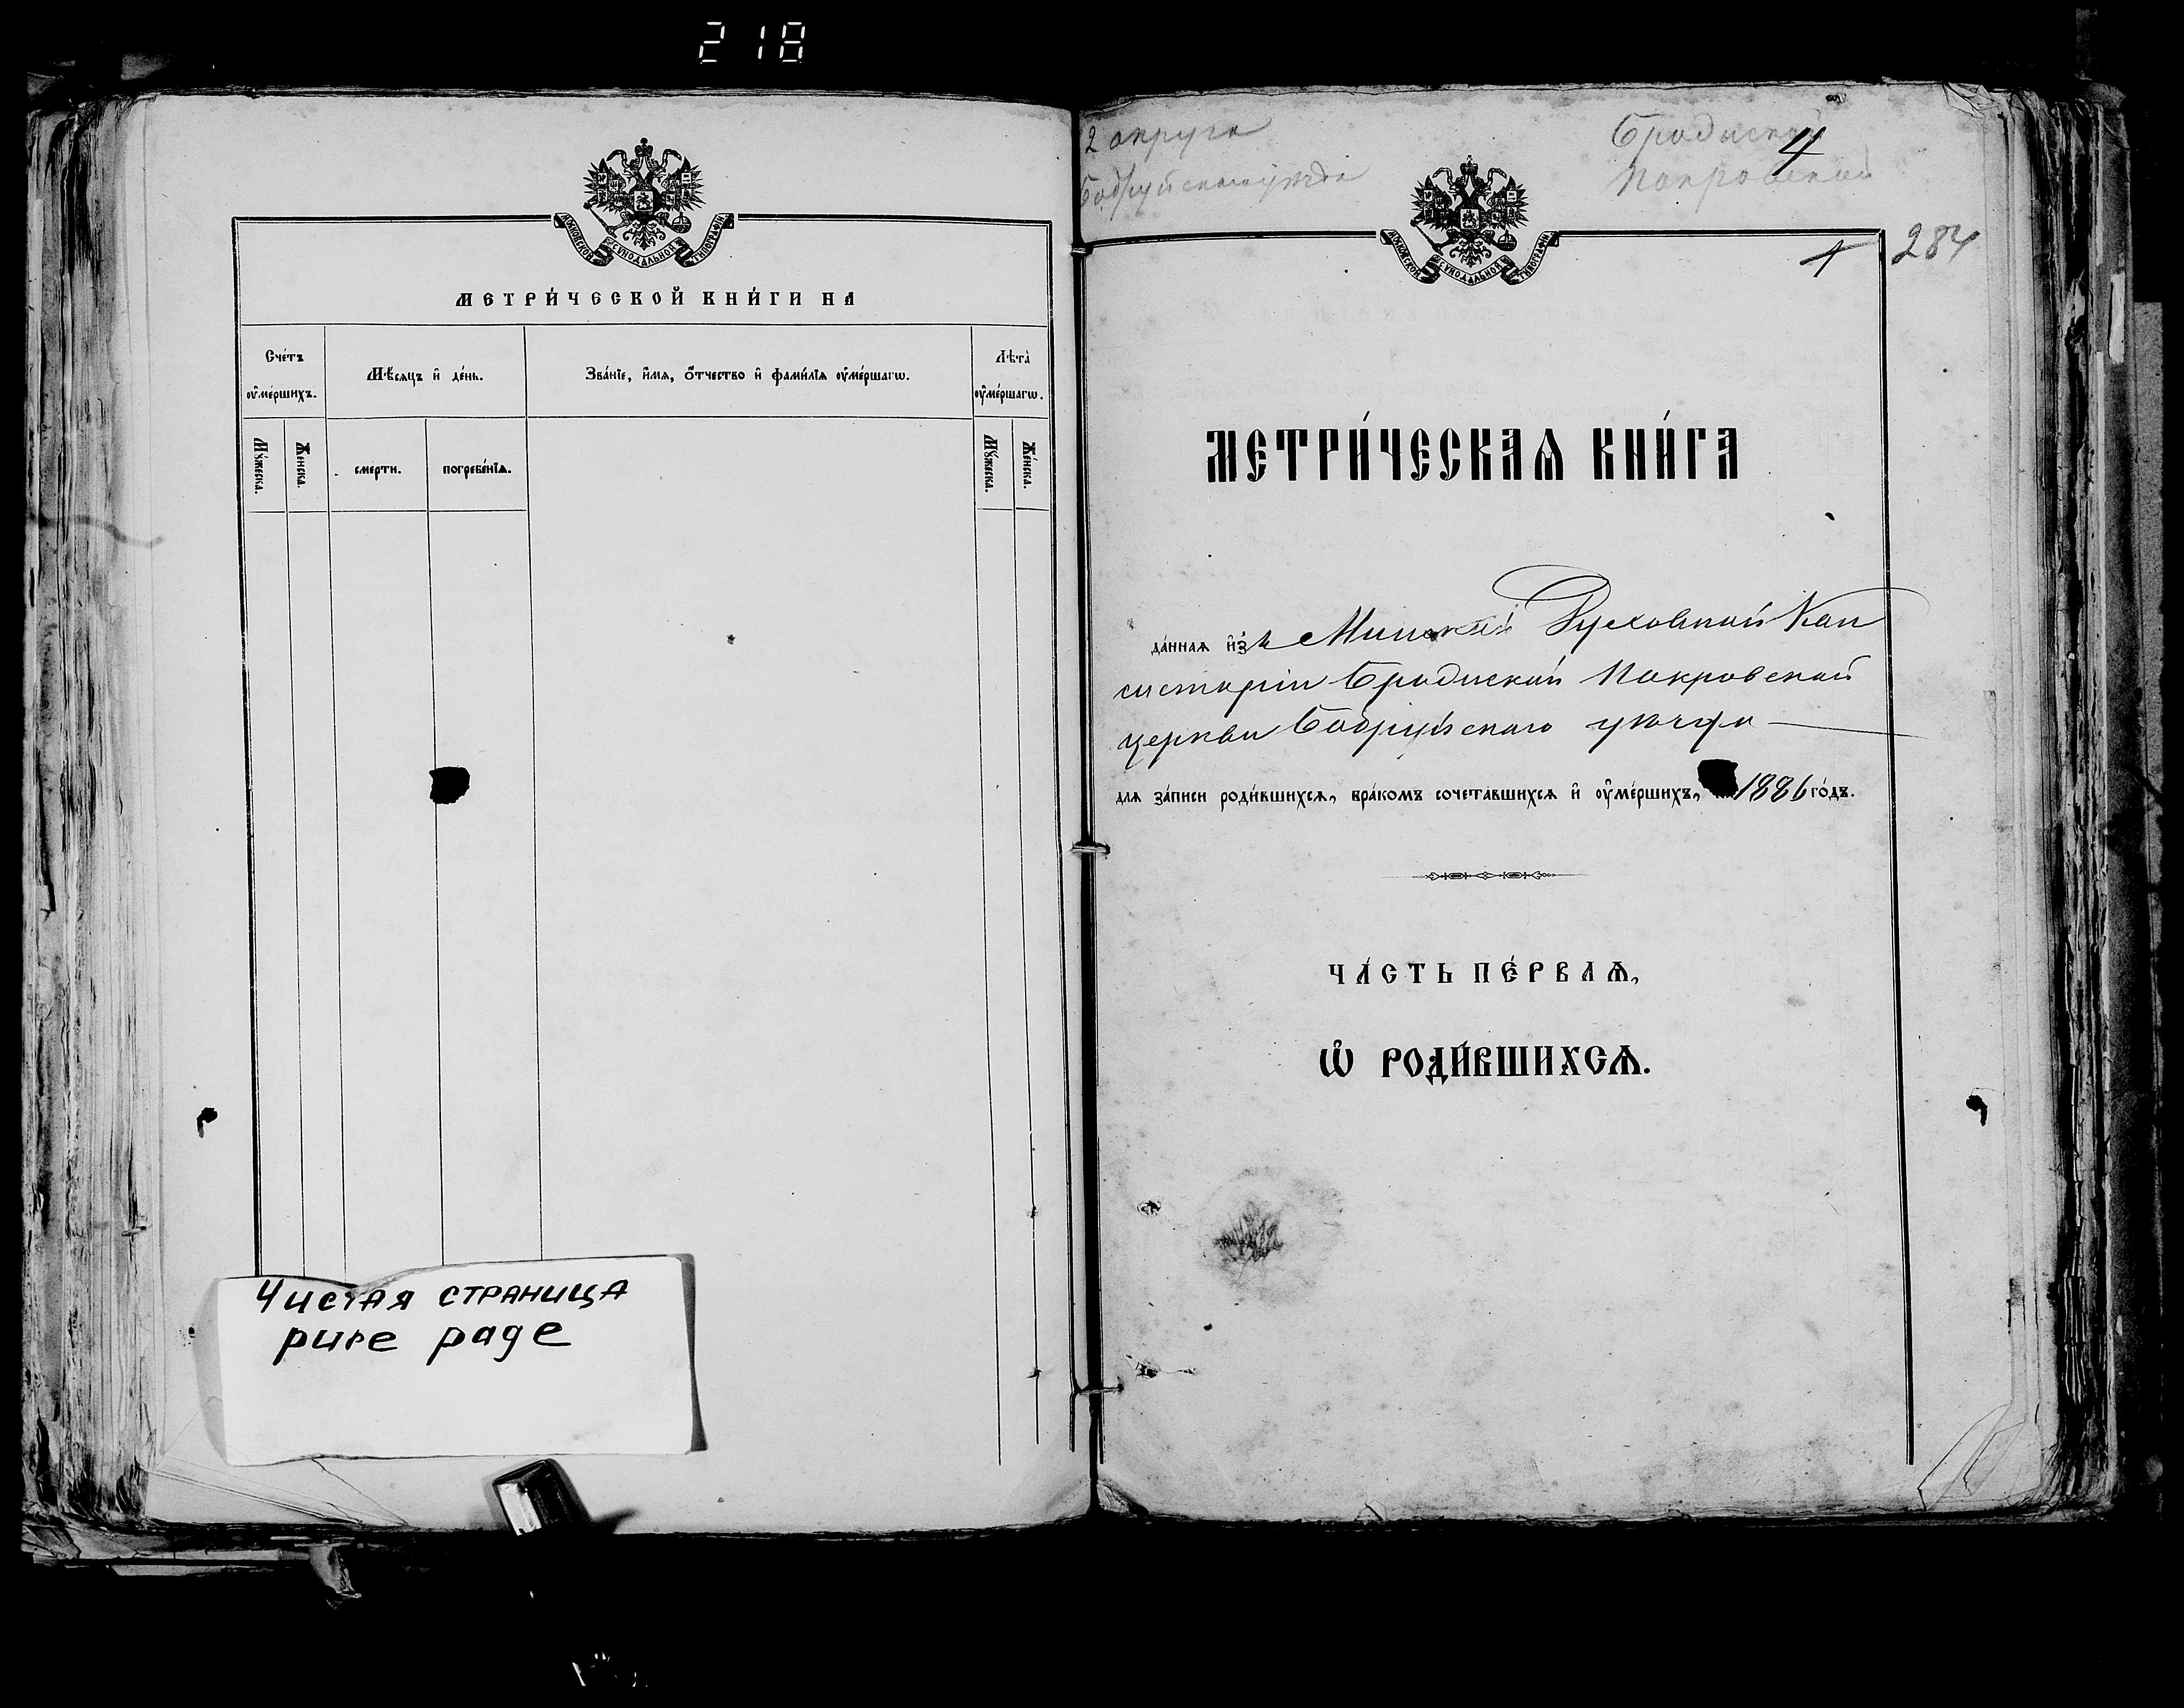 218
МОСКОВСКОЙ СѴНОДАЛЬНОЙ ТИПОГРАФІИ
МЕТРИ́ЧЕСКОЙ КНИ́ГИ НА
Сче́тъ ᲂу҆ме́ршихъ.
Мѣ́сяцъ и҆ де́нь.
Зва́нїе, и҆́мѧ, ѻ҆́тчество и҆ фами́лїѧ ᲂу҆ме́ршагѡ.
Лѣта̀ ᲂу҆ме́ршагѡ.
Мꙋ́жеска.
Же́нска.
сме́рти.
погребе́нїѧ.
Мꙋ́жеска.
Же́нска.
Чистая страница
pure page
2 округа
Бобруйскаго уѣзда
Покровской
4
МОСКОВСКОЙ СѴНОДАЛЬНОЙ ТИПОГРАФІИ
1
284
МЕТРИ́ЧЕСКАѦ КНИ́ГА
да́ннаѧ и҆зъ Минской Духовной Кон
систоріи Покровской
церкви Бобруйскаго уѣзда
длѧ за́писи роди́вшихсѧ, бра́комъ сочета́вшихсѧ и҆ ᲂу҆ме́ршихъ, 1886 го́дъ.
ЧА́СТЬ ПЕ́РВАѦ,
Ѡ҆ РОДИ́ВШИХСѦ.